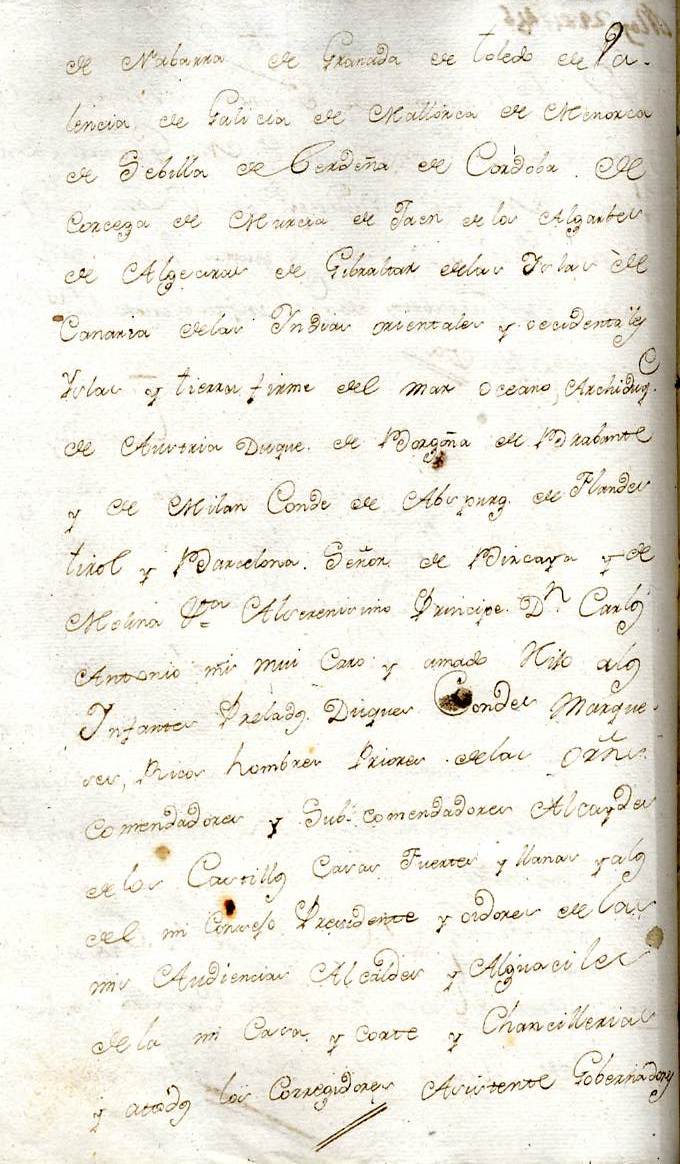 de Nabarra de Granada de toledo de Va-
lencia de Galicia de Mallorca de Menorca
de Sebilla de Cerdeña de Cordoba de
Corcega de Murcia de Jaen de los Algarbes
de Algeciras de Gibraltar de las Yslas de
Canaria de las Indias orientales y occidentales
Yslas y tierra firme del mar oceano, Archiduq.
de Austria Duque de Borgoña de Brabante
y de Milan Conde de Abspurg de Flandes
tirol y Barcelona. Señor de Bizcaya y de
Molina Alserenisimo Principe Dn Carlos
Antonio mi mui Caro y amado Hijo alos
Infantes Prelados Duques Condes Marque-
ses, Ricos hombres Priores de las orñs
Comendadores y Sub-comendadores Alcaydes
de los Castillos Casas Fuertes y llanas y alos
del mi Consejo Presidente y oidores de las
mis Audiencias Alcaldes y Alguaciles
de la mi Casa y corte y Chancillerias
y atodos los Corregidores Asistente Gobernadores